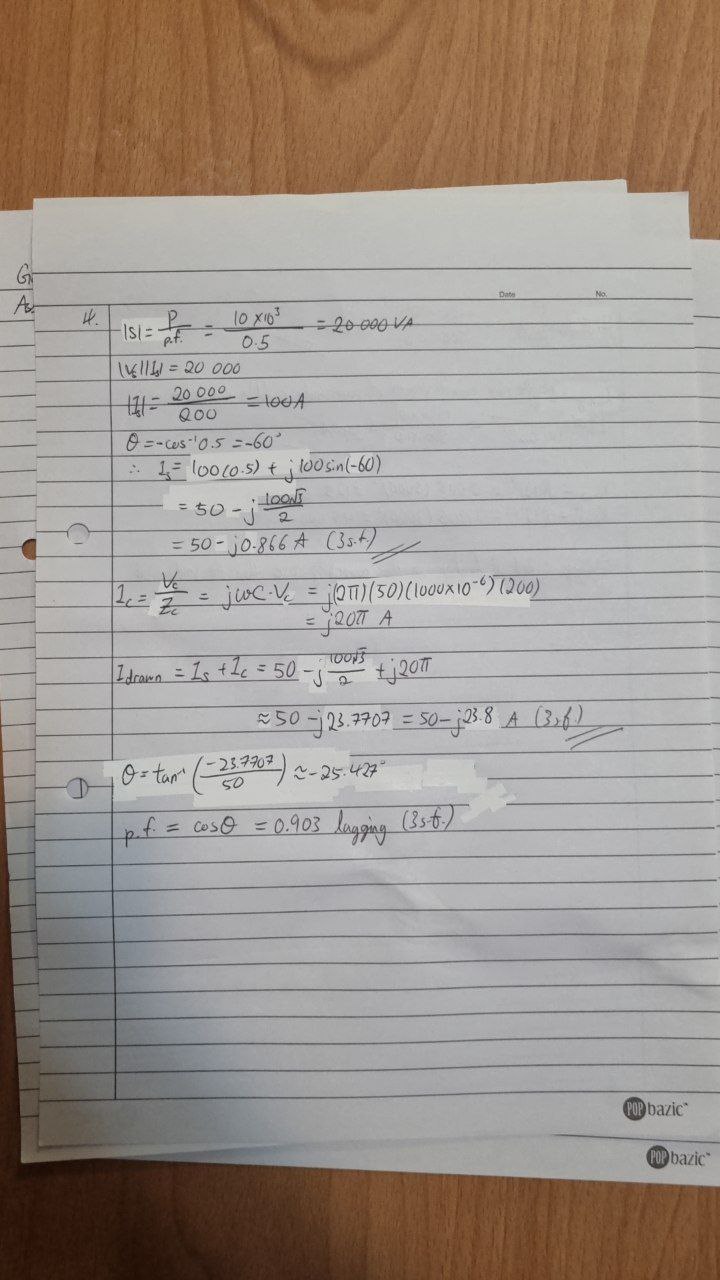 Date No.
4. |S| = P/p.f. = 10 ×10³/0.5 = 20 000 VA
|Vs||Is| = 20 000
|Is| = 20 000/200 = 100A
θ = -cos⁻¹0.5 = -60°
∴ Is = 100(0.5) + j100sin(-60)
= 50 - j 100√3/2
= 50 - j0.866 A (3s.f.)
Ic = Vc/Zc = jωC·Vc = j(2π)(50)(1000×10⁻⁶)(200)
= j20π A
Idrawn = Is + Ic = 50 - j 100√3/2 + j20π
≈ 50 - j23.7707 = 50 - j23.8 A (3s.f.)
θ = tan⁻¹ (-23.7707/50) ≈ -25.427°
p.f. = cosθ = 0.903 lagging (3s.f.)
POP bazic™
POP bazic™